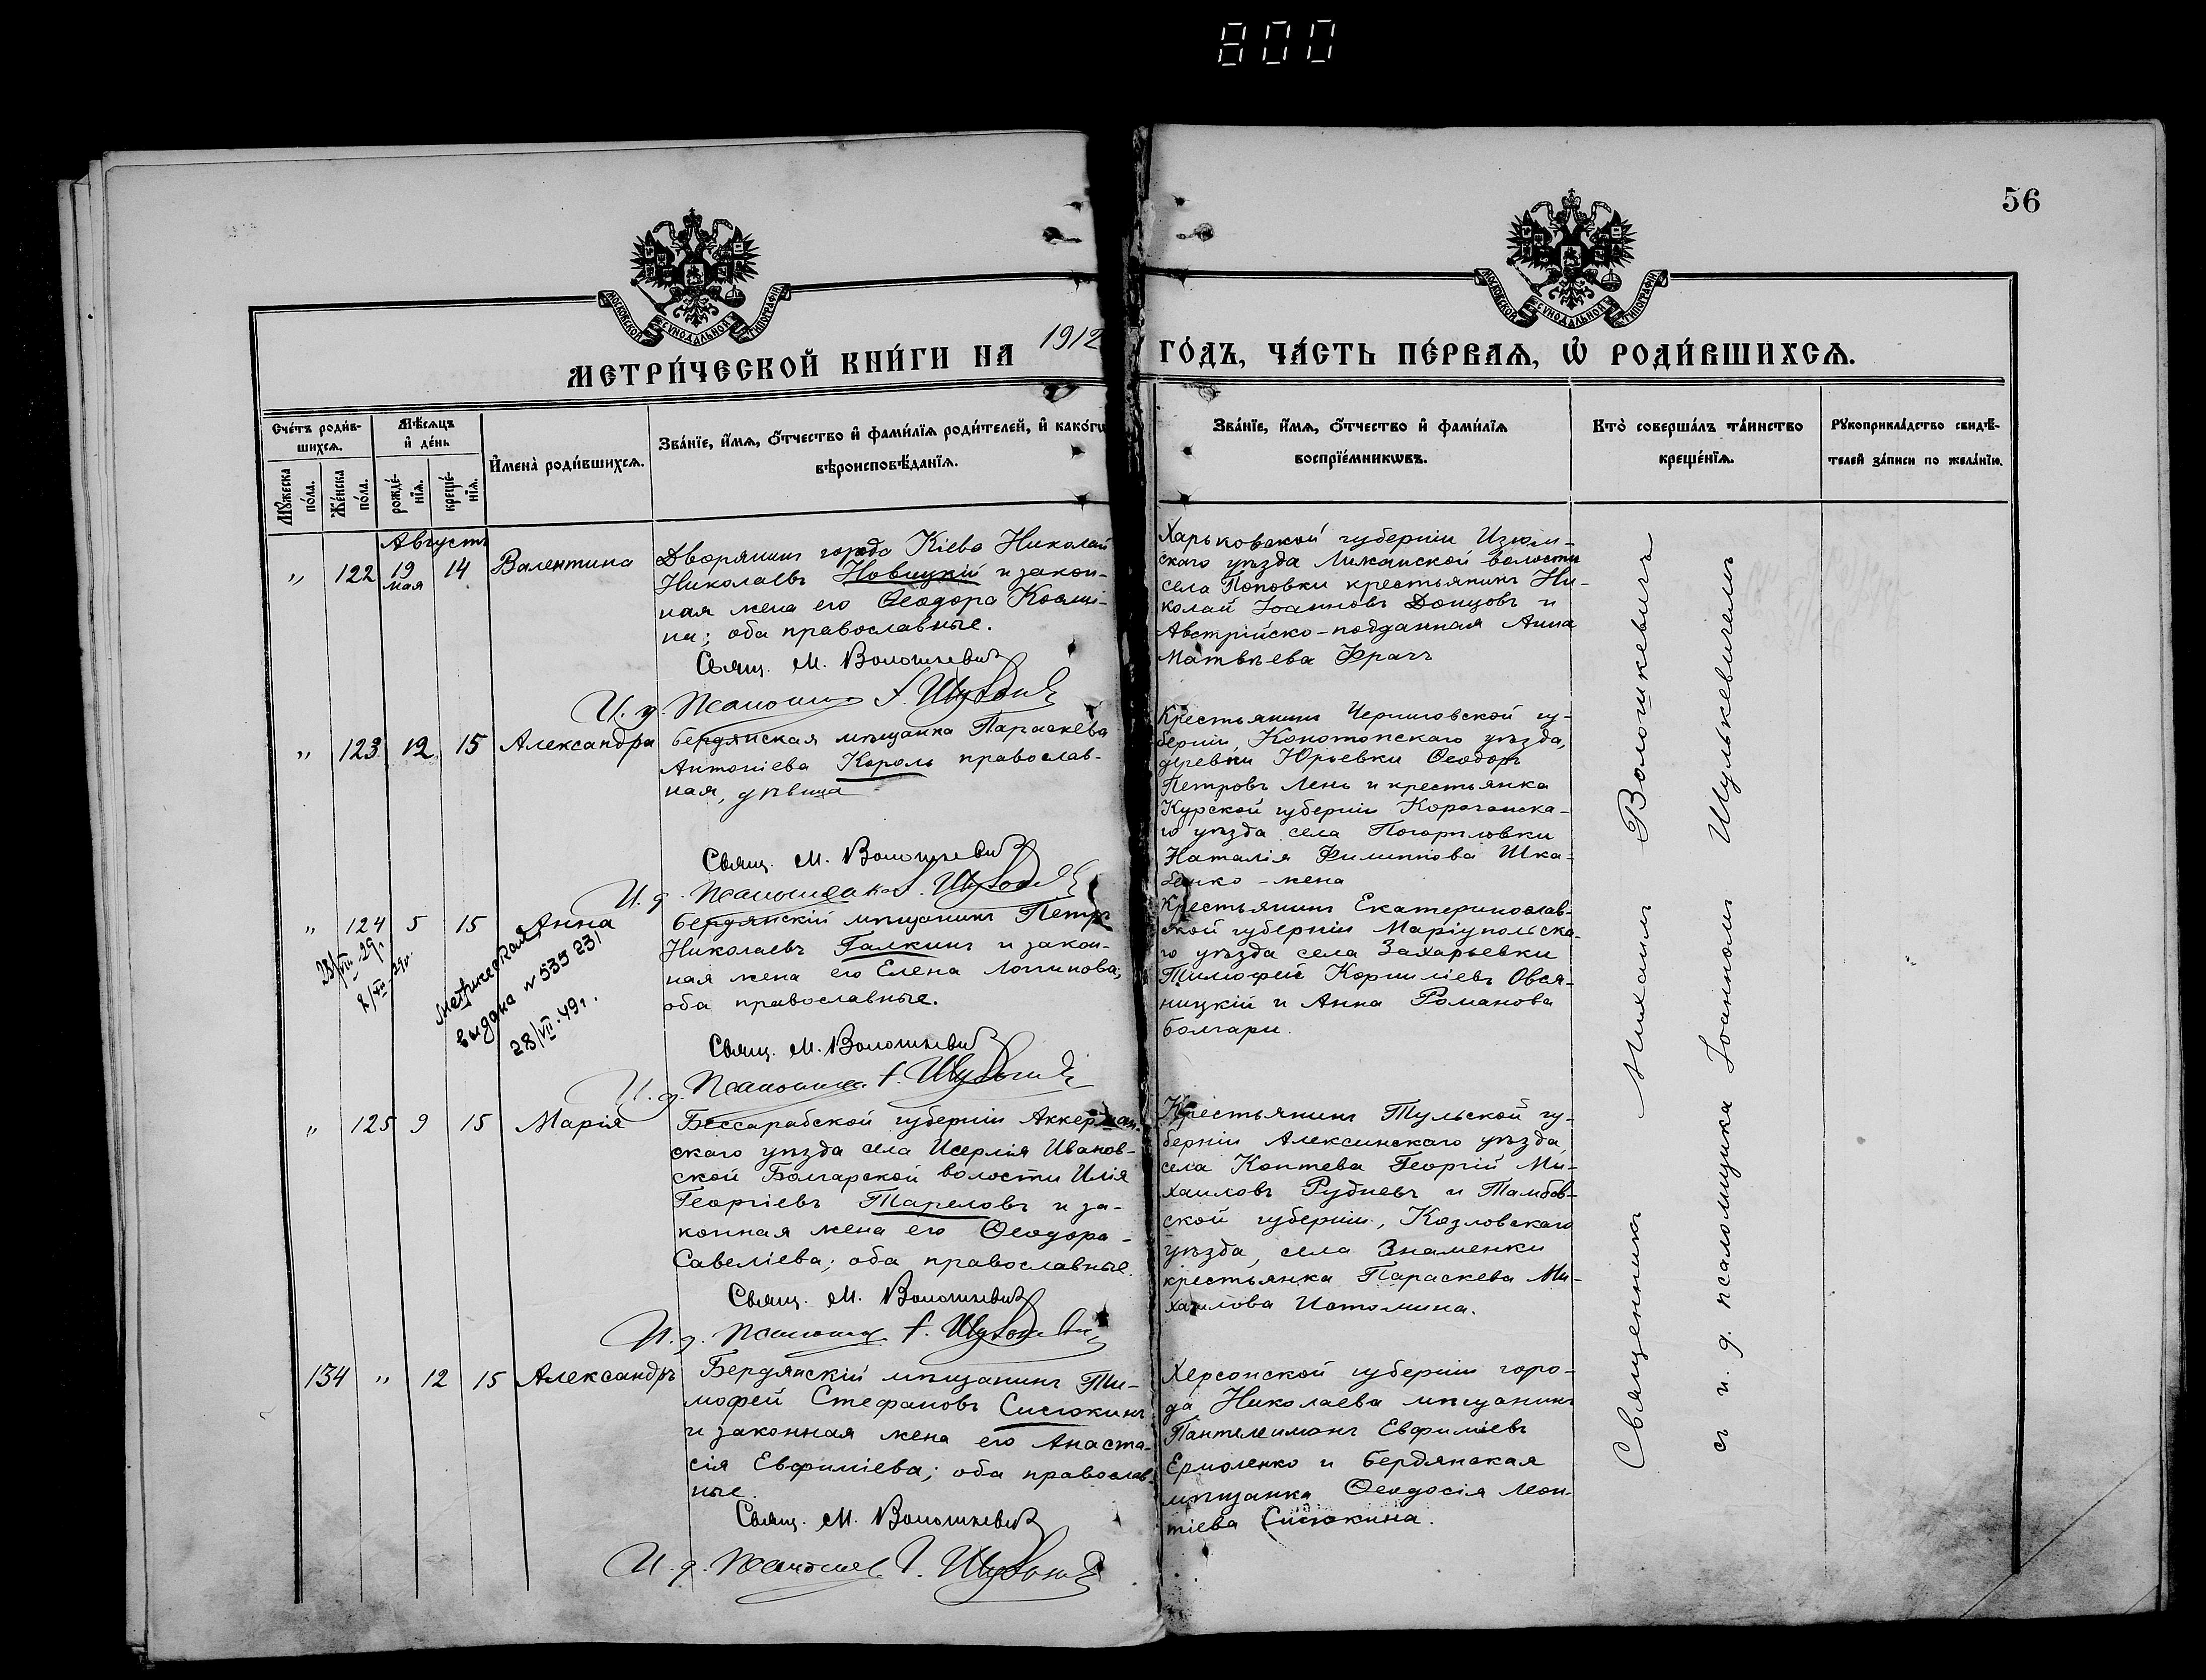 800
56
МОСКОВСКОЙ СУНОДАЛЬНОЙ ТИПОГРАФІИ
МОСКОВСКОЙ СУНОДАЛЬНОЙ ТИПОГРАФІИ
МЕТРИ́ЧЕСКОЙ КНИ́ГИ НА 1912
ГО́ДЪ, ЧА́СТЬ ПЕ́РВАѦ, Ѽ РОДИ́ВШИХСѦ.
Сче́тъ роди́в-
шихсѧ.
Мѣ́сѧцъ
и҆ де́нь
Мꙋ́жеска
по́ла.
Же́нска
по́ла.
рожде́-
нїѧ.
креще́-
нїѧ.
И҆мена̀ роди́вшихсѧ.
Зва́нїе, и҆́мѧ, ѻ҆́тчество и҆ фами́лїѧ роди́телей, и҆ како́гѡ
вѣроисповѣ́данїѧ.
Зва́нїе, и҆́мѧ, ѻ҆́тчество и҆ фами́лїѧ
воспрїе́мникѡвъ.
Кто̀ соверша́лъ та́инство
креще́нїѧ.
Рꙋкоприкла́дство свидѣ́-
телей за́писи по жела́нїю.
Августъ
" 122 19 мая 14 Валентина
Дворянинъ города Кіева Николай
Николаевъ Новицкій и закон-
ная жена его Ѳеодора
оба православные.
Свящ. М. Волошкевич
И. д. псаломщ. І.
Харьковской губерніи Изюм-
скаго уѣзда Лиманской волости
села Поповки крестьянинъ Ни-
колай Іоанновъ Донцовъ и
Австрійско-подданная Анна
Матвѣева Фрачъ
" 123 12 15 Александра
бердянская мѣщанка Параскева
Антоніева Король православ-
ная, дѣвица
Свящ. М. Волошкевич
И. д. псаломщика І.
Крестьянинъ Черниговской гу-
берніи, Конотопскаго уѣзда,
деревни Юрьевки Ѳеодоръ
Петровъ Лень и крестьянка
Курской губерніи Корочанска-
го уѣзда села Погорѣловки
Наталія Филиппова Шка-
- жена
" 124 5 15 Анна
23/VIII-29г.
Метрическая
выдана № 53923
28/VII.49г.
бердянскій мѣщанинъ Петръ
Николаевъ Галкинъ и закон-
ная жена его Елена Логинова,
оба православные.
Свящ. М. Волошкевич
И. д. псаломщ. І.
Крестьянинъ Екатеринослав-
ской губерніи Маріупольска-
го уѣзда села Захарьевки
Тимофей Корниліевъ Овся-
ницкій и Анна Романова
болгари.
" 125 9 15 Марія
Бессарабской губерніи Аккерман-
скаго уѣзда села Исерлія Иванов-
ской Болгарской волости Илія
Георгіевъ Тареловъ и за-
конная жена его Ѳеодора
Савеліева; оба православные.
Свящ. М. Волошкевич
И. д. псаломщ. І.
Крестьянинъ Тульской гу-
берніи Алексинскаго уѣзда,
села Коптева Георгій Ми-
хаиловъ Рудневъ и Тамбов-
ской губерніи, Козловскаго
уѣзда, села Знаменки
крестьянка Параскева Ми-
хаилова Истомина.
134 " 12 15 Александръ
Бердянскій мѣщанинъ Ти-
мофей Стефановъ Сисюкинъ
и законная жена его Анаста-
сія Евфиміева; оба православ-
ные.
Свящ. М. Волошкевич
И. д. псаломщ. І.
Херсонской губерніи горо-
да Николаева мѣщанинъ
Пантелеимонъ Евфиміевъ
Ермоленко и бердянская
мѣщанка Ѳеодосія Леон-
тіева Сисюкина.
Священникъ Михаилъ Волошкевичъ
съ и. д. псаломщика Іоанномъ Шулькевичемъ